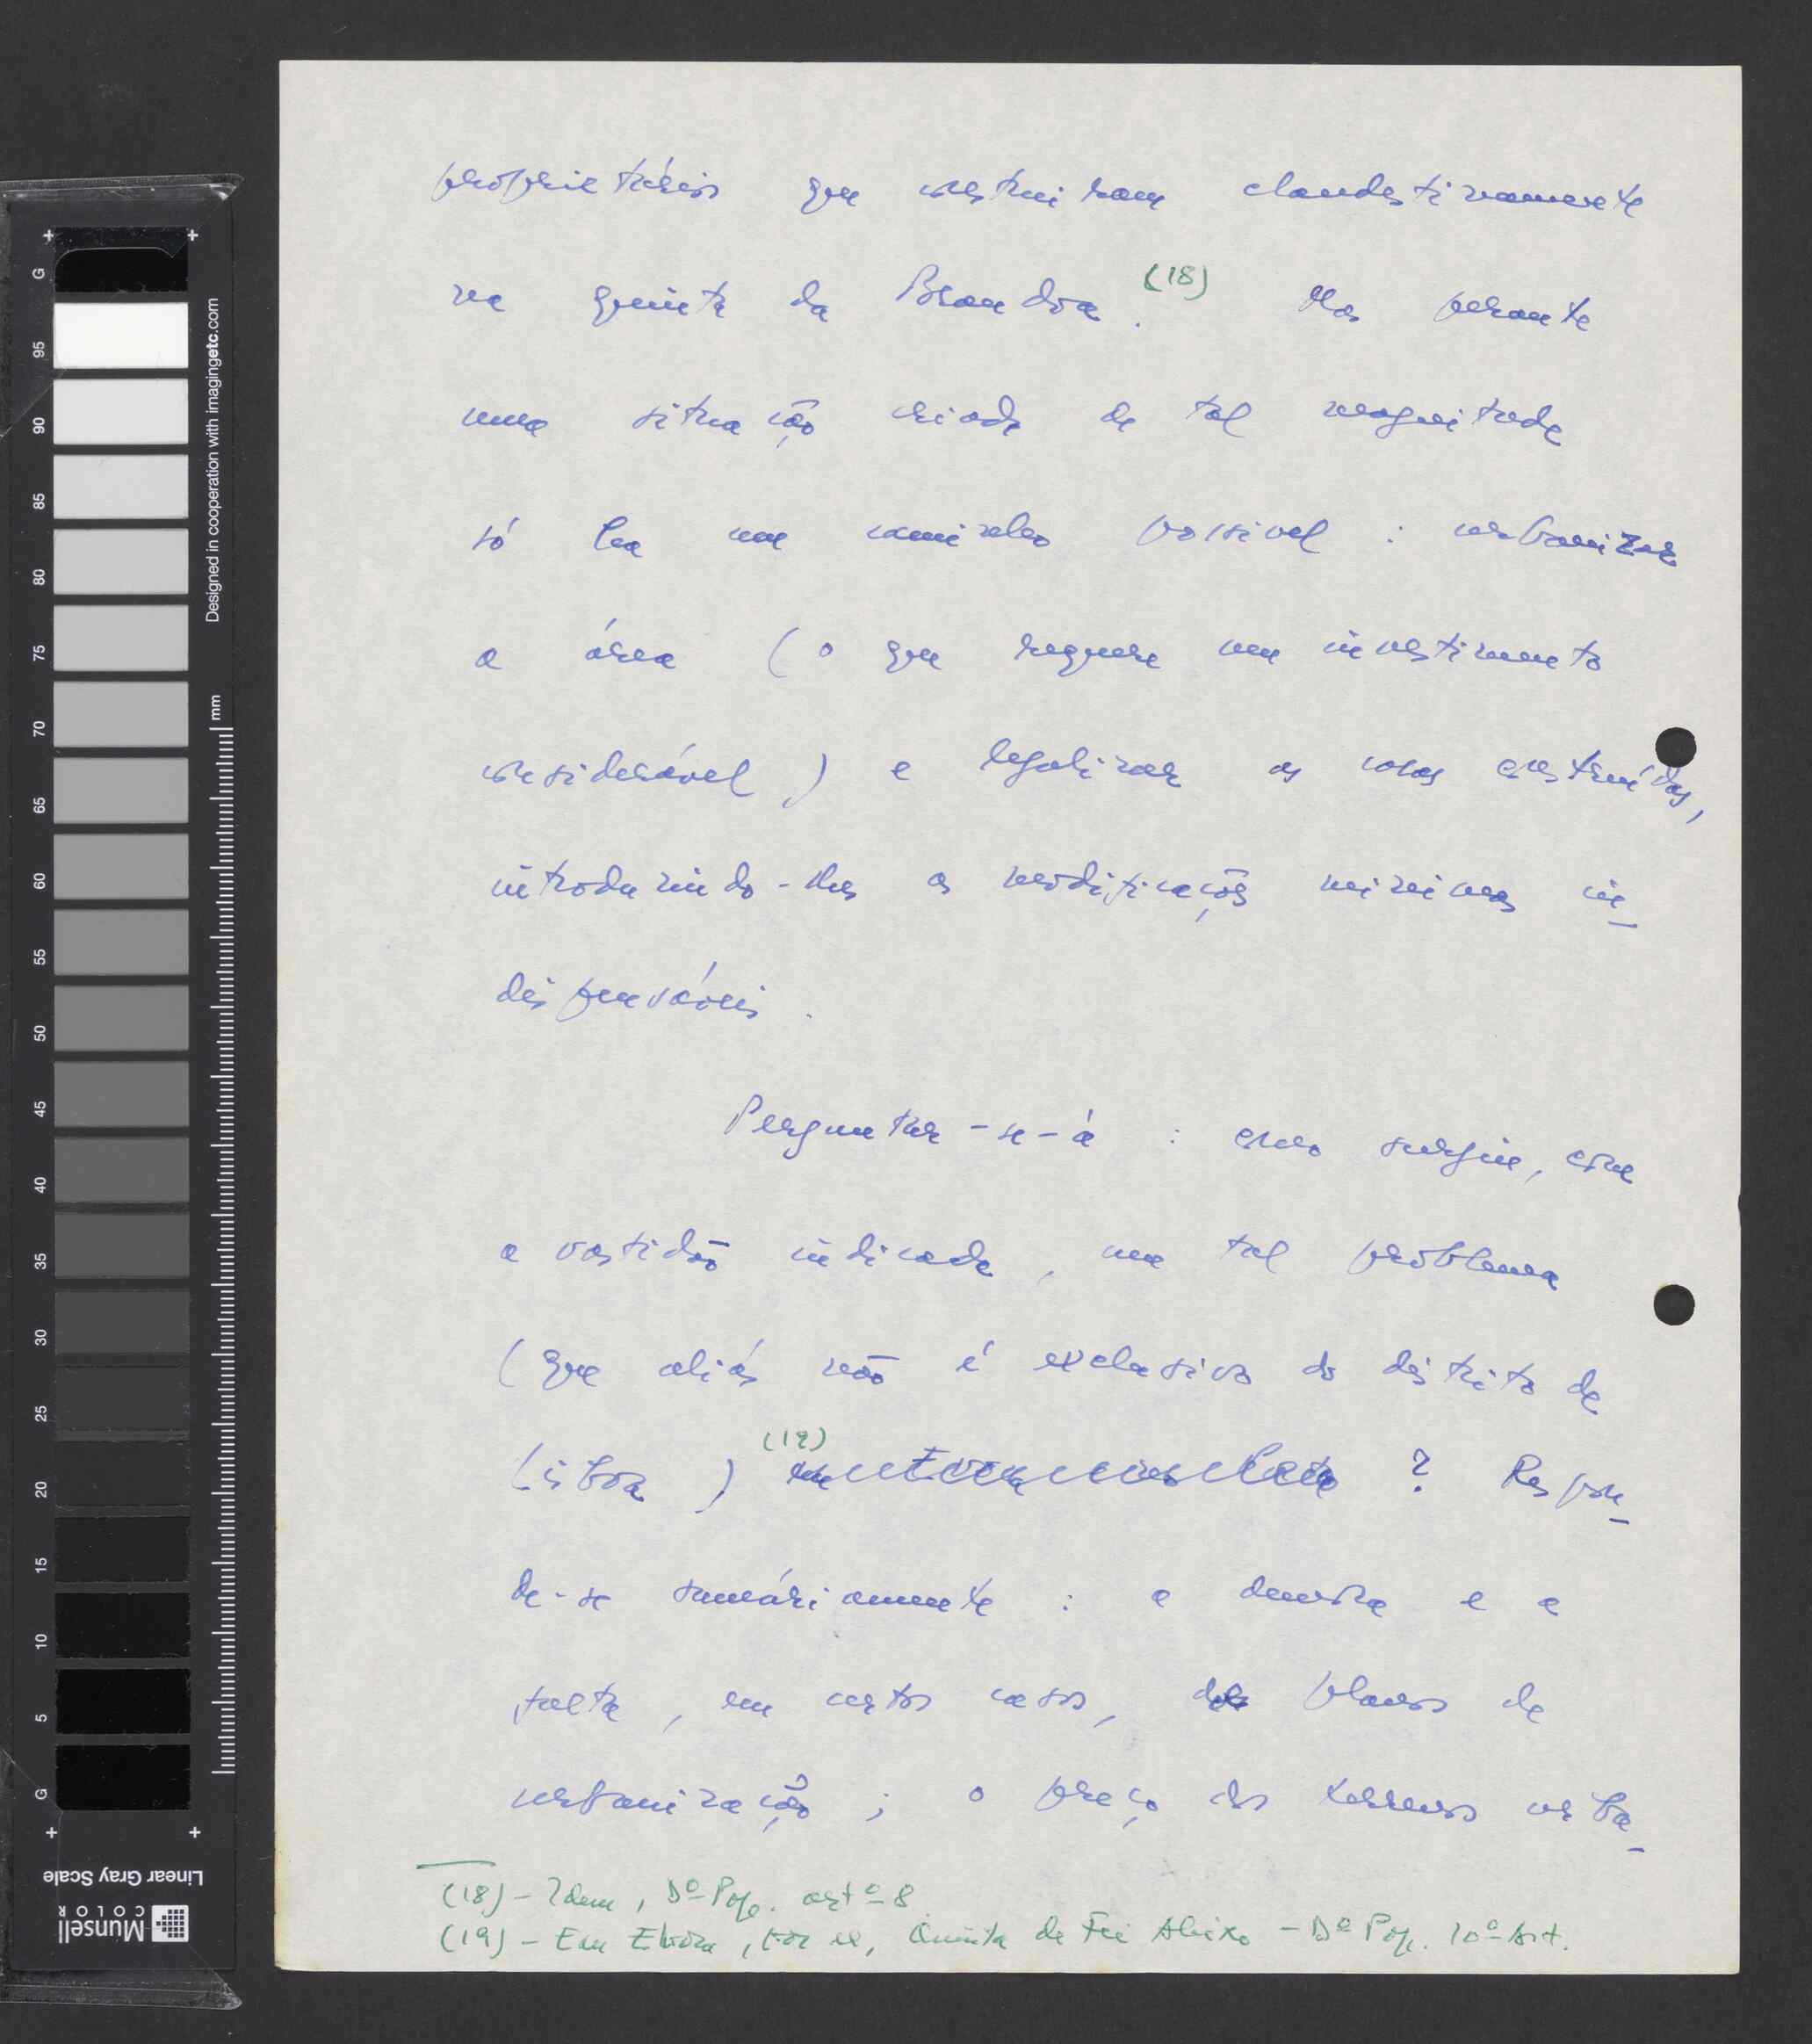 proprietários que construiram clandestinamente
na quinta da Brandoa. (18) Mas perante
uma situação criada de tal magnitude
só ha um caminho possivel : urbanizar
a área (o que requere um investimento
considerável) e legalizar as casas construídas,
introduzindo-lhes as modificações minimas in-
dispensáveis.
Perguntar-se-á : como surgiu, com
a vastidão indicada, um tal problema
(que aliás não é exclusivo do distrito de
Lisboa) (19) ? Respon-
de-se sumáriamente : a demora e a
falta, em certos casos, de planos de
urbanização ; o preço dos terrenos urba-
(18) - Idem, Dº Pop. artº 8
(19) - Em Evora, por ex, Quinta de Frei Aleixo - Dº Pop. 10º Art.
G
95
90
85
80
75
70
65
60
55
50
45
40
35
30
25
20
15
10
5
G
mm
Designed in cooperation with imagingetc.com
Linear Gray Scale
Munsell
COLOR